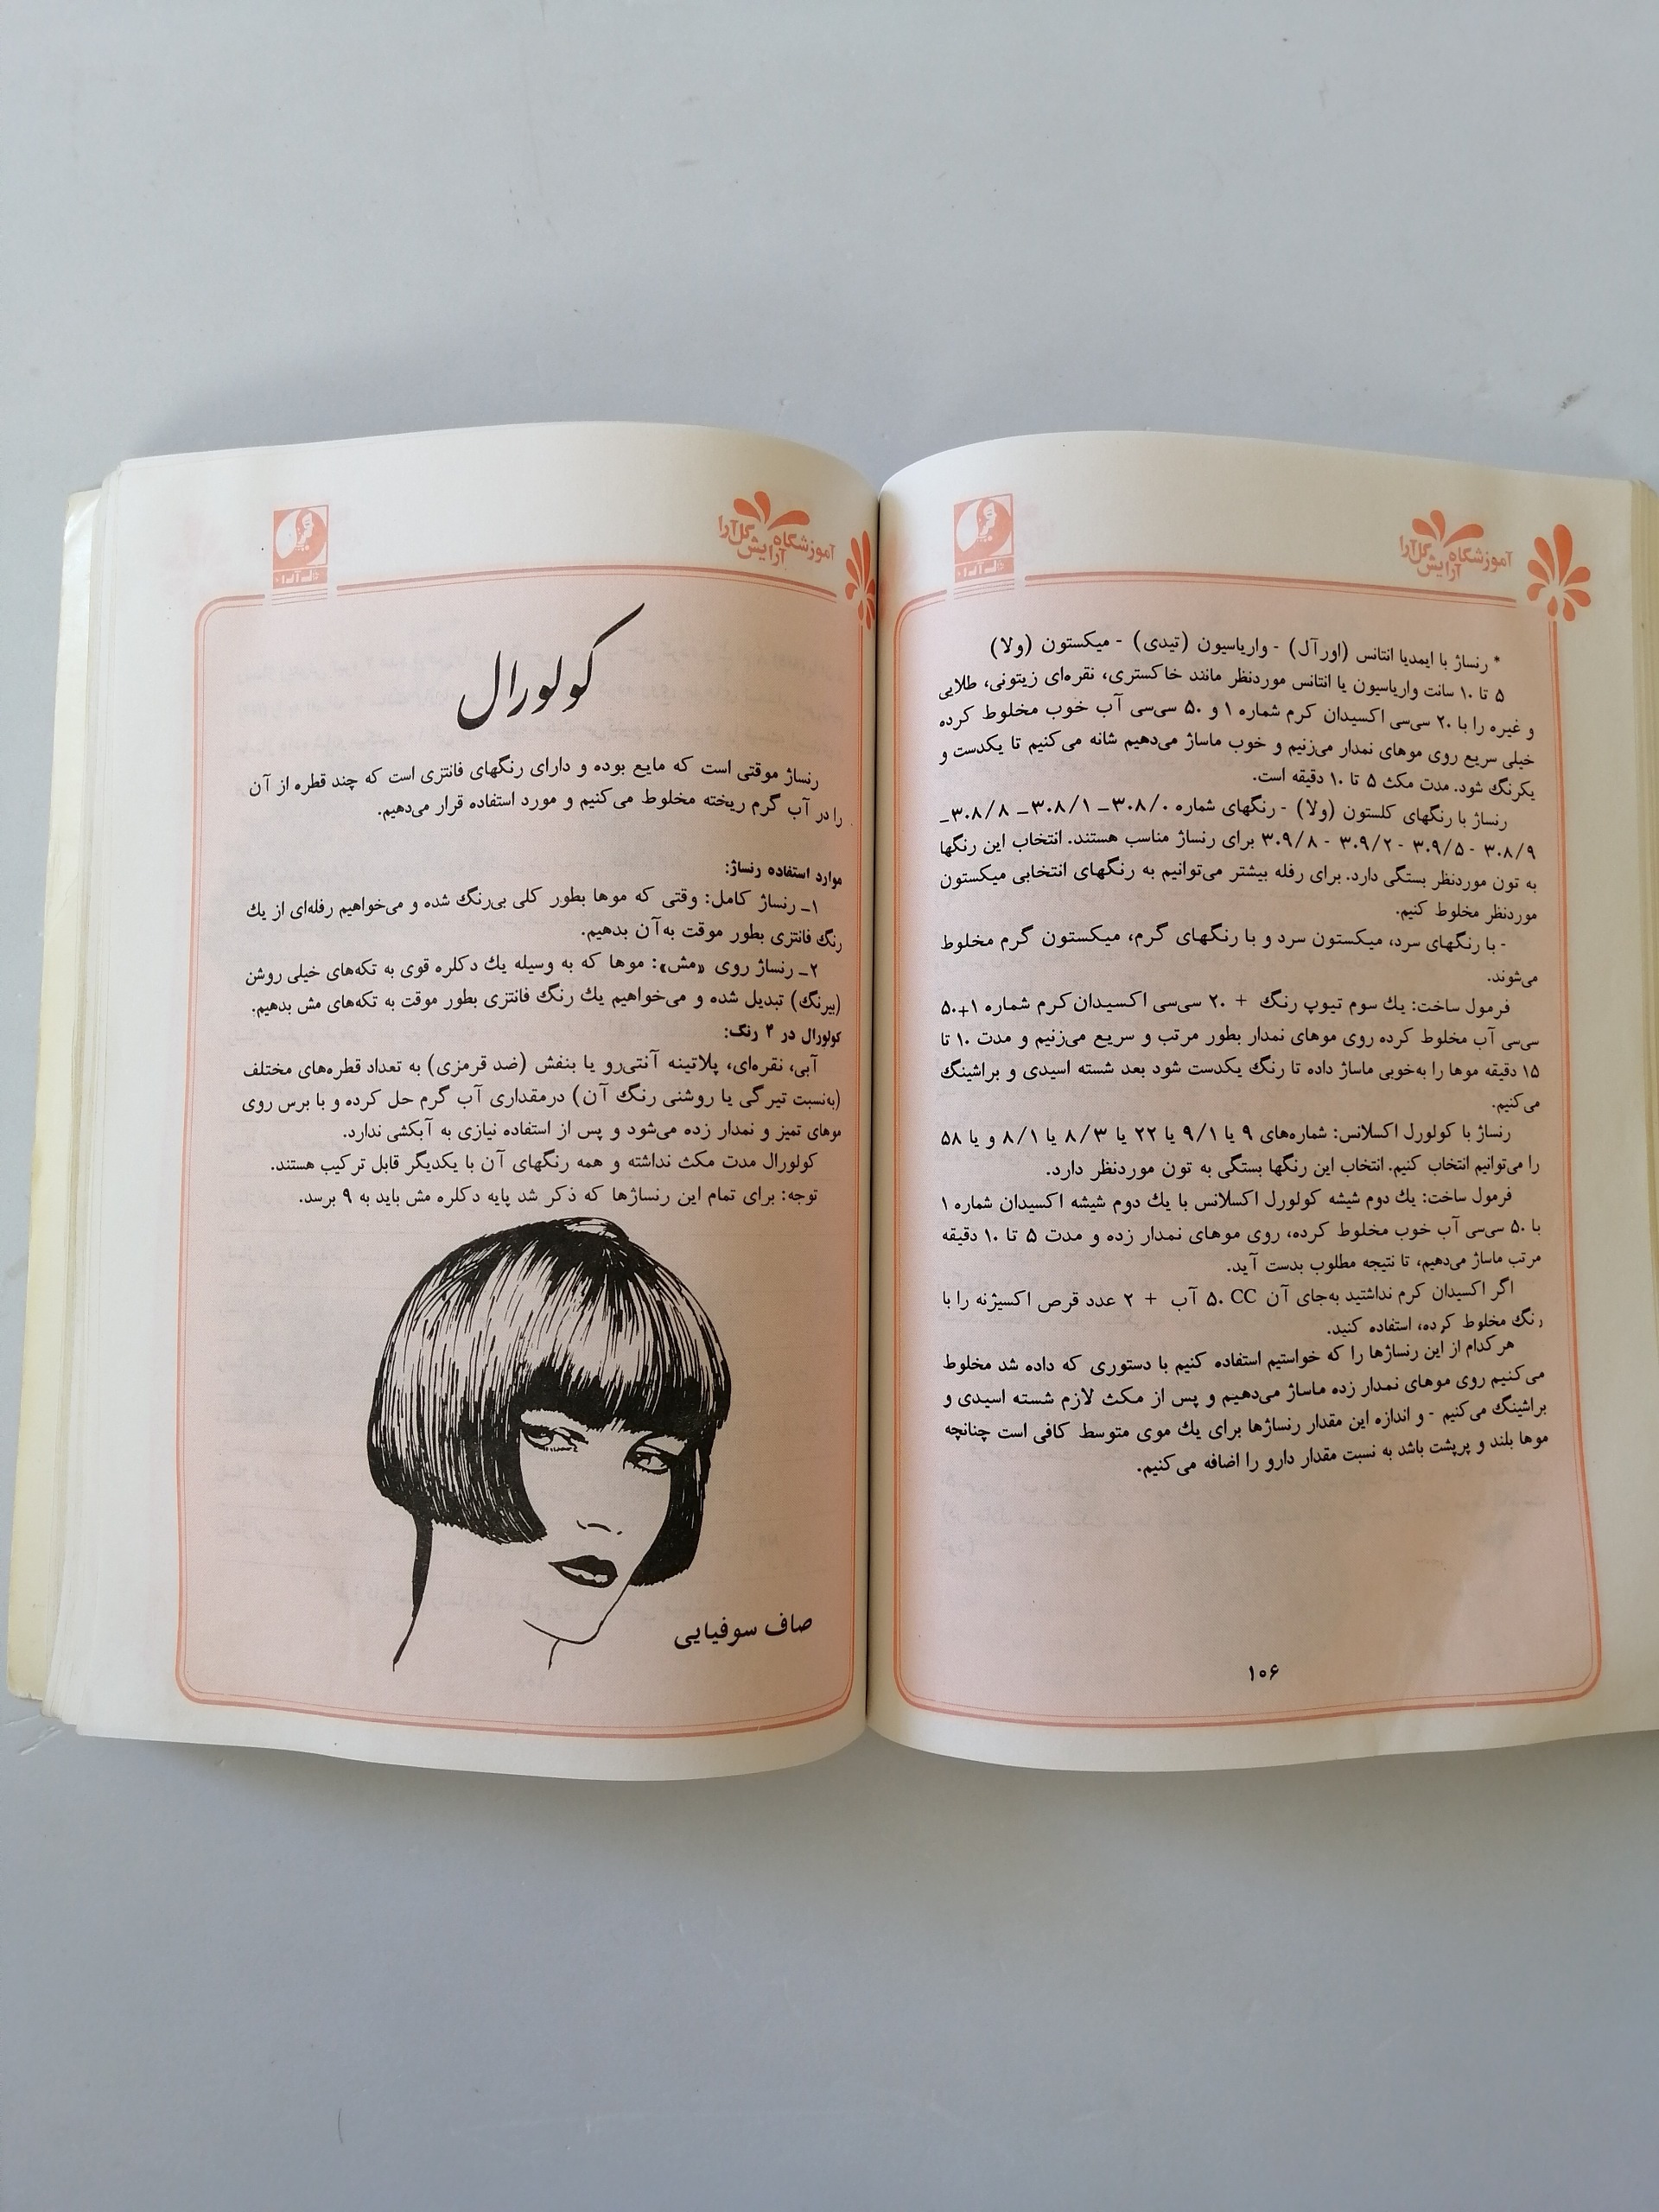 آموزشگاه
آرایش گل‌آرا
گل‌آرا
* رنساژ با ایمدیا انتانس (اورآل) - واریاسیون (تیدی) - میکستون (ولا)
۵ تا ۱۰ سانت واریاسیون یا انتانس موردنظر مانند خاکستری، نقره‌ای زیتونی، طلایی
و غیره را با ۲۰ سی‌سی اکسیدان کرم شماره ۱ و ۵۰ سی‌سی آب خوب مخلوط کرده
خیلی سریع روی موهای نمدار می‌زنیم و خوب ماساژ می‌دهیم شانه می‌کنیم تا یکدست و
یکرنگ شود. مدت مکث ۵ تا ۱۰ دقیقه است.
رنساژ با رنگهای کلستون (ولا) - رنگهای شماره ۳۰۸/۰ــ ۳۰۸/۱ ــ ۳۰۸/۸ــ
۳۰۸/۹ - ۳۰۹/۵ - ۳۰۹/۲ - ۳۰۹/۸ برای رنساژ مناسب هستند. انتخاب این رنگها
به تون موردنظر بستگی دارد. برای رفله بیشتر می‌توانیم به رنگهای انتخابی میکستون
موردنظر مخلوط کنیم.
- با رنگهای سرد، میکستون سرد و با رنگهای گرم، میکستون گرم مخلوط
می‌شوند.
فرمول ساخت: یك سوم تیوپ رنگ + ۲۰ سی‌سی اکسیدان کرم شماره ۱+۵۰
سی‌سی آب مخلوط کرده روی موهای نمدار بطور مرتب و سریع می‌زنیم و مدت ۱۰ تا
۱۵ دقیقه موها را به‌خوبی ماساژ داده تا رنگ یکدست شود بعد شسته اسیدی و براشینگ
می‌کنیم.
رنساژ با کولورل اکسلانس: شماره‌های ۹ یا ۹/۱ یا ۲۲ یا ۸/۳ یا ۸/۱ و یا ۵۸
را می‌توانیم انتخاب کنیم. انتخاب این رنگها بستگی به تون موردنظر دارد.
فرمول ساخت: یك دوم شیشه کولورل اکسلانس با یك دوم شیشه اکسیدان شماره ۱
با ۵۰ سی‌سی آب خوب مخلوط کرده، روی موهای نمدار زده و مدت ۵ تا ۱۰ دقیقه
مرتب ماساژ می‌دهیم، تا نتیجه مطلوب بدست آید.
اگر اکسیدان کرم نداشتید به‌جای آن ۵۰ CC آب + ۲ عدد قرص اکسیژنه را با
رنگ مخلوط کرده، استفاده کنید.
هرکدام از این رنساژها را که خواستیم استفاده کنیم با دستوری که داده شد مخلوط
می‌کنیم روی موهای نمدار زده ماساژ می‌دهیم و پس از مکث لازم شسته اسیدی و
براشینگ می‌کنیم - و اندازه این مقدار رنساژها برای یك موی متوسط کافی است چنانچه
موها بلند و پرپشت باشد به نسبت مقدار دارو را اضافه می‌کنیم.
۱۰۶
آموزشگاه
آرایش گل‌آرا
گل‌آرا
کولورال
رنساژ موقتی است که مایع بوده و دارای رنگهای فانتزی است که چند قطره از آن
را در آب گرم ریخته مخلوط می‌کنیم و مورد استفاده قرار می‌دهیم.
موارد استفاده رنساژ:
۱ــ رنساژ کامل: وقتی که موها بطور کلی بی‌رنگ شده و می‌خواهیم رفله‌ای از یك
رنگ فانتزی بطور موقت به‌آن بدهیم.
۲ــ رنساژ روی «مش»: موها که به وسیله یك دکلره قوی به تکه‌های خیلی روشن
(بیرنگ) تبدیل شده و می‌خواهیم یك رنگ فانتزی بطور موقت به تکه‌های مش بدهیم.
کولورال در ۴ رنگ:
آبی، نقره‌ای، پلاتینه آنتی‌رو یا بنفش (ضد قرمزی) به تعداد قطره‌های مختلف
(به‌نسبت تیرگی یا روشنی رنگ آن) درمقداری آب گرم حل کرده و با برس روی
موهای تمیز و نمدار زده می‌شود و پس از استفاده نیازی به آبکشی ندارد.
کولورال مدت مکث نداشته و همه رنگهای آن با یکدیگر قابل ترکیب هستند.
توجه: برای تمام این رنساژها که ذکر شد پایه دکلره مش باید به ۹ برسد.
صاف سوفیایی